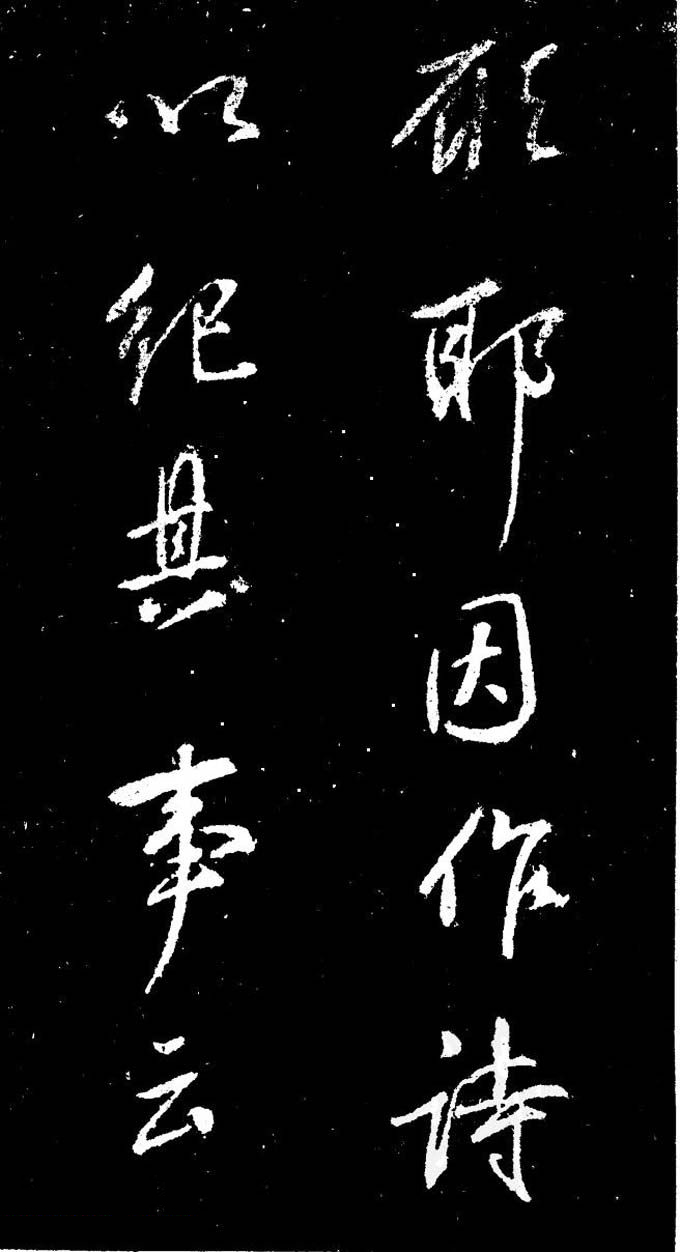 願耶因作詩
以紀其事云